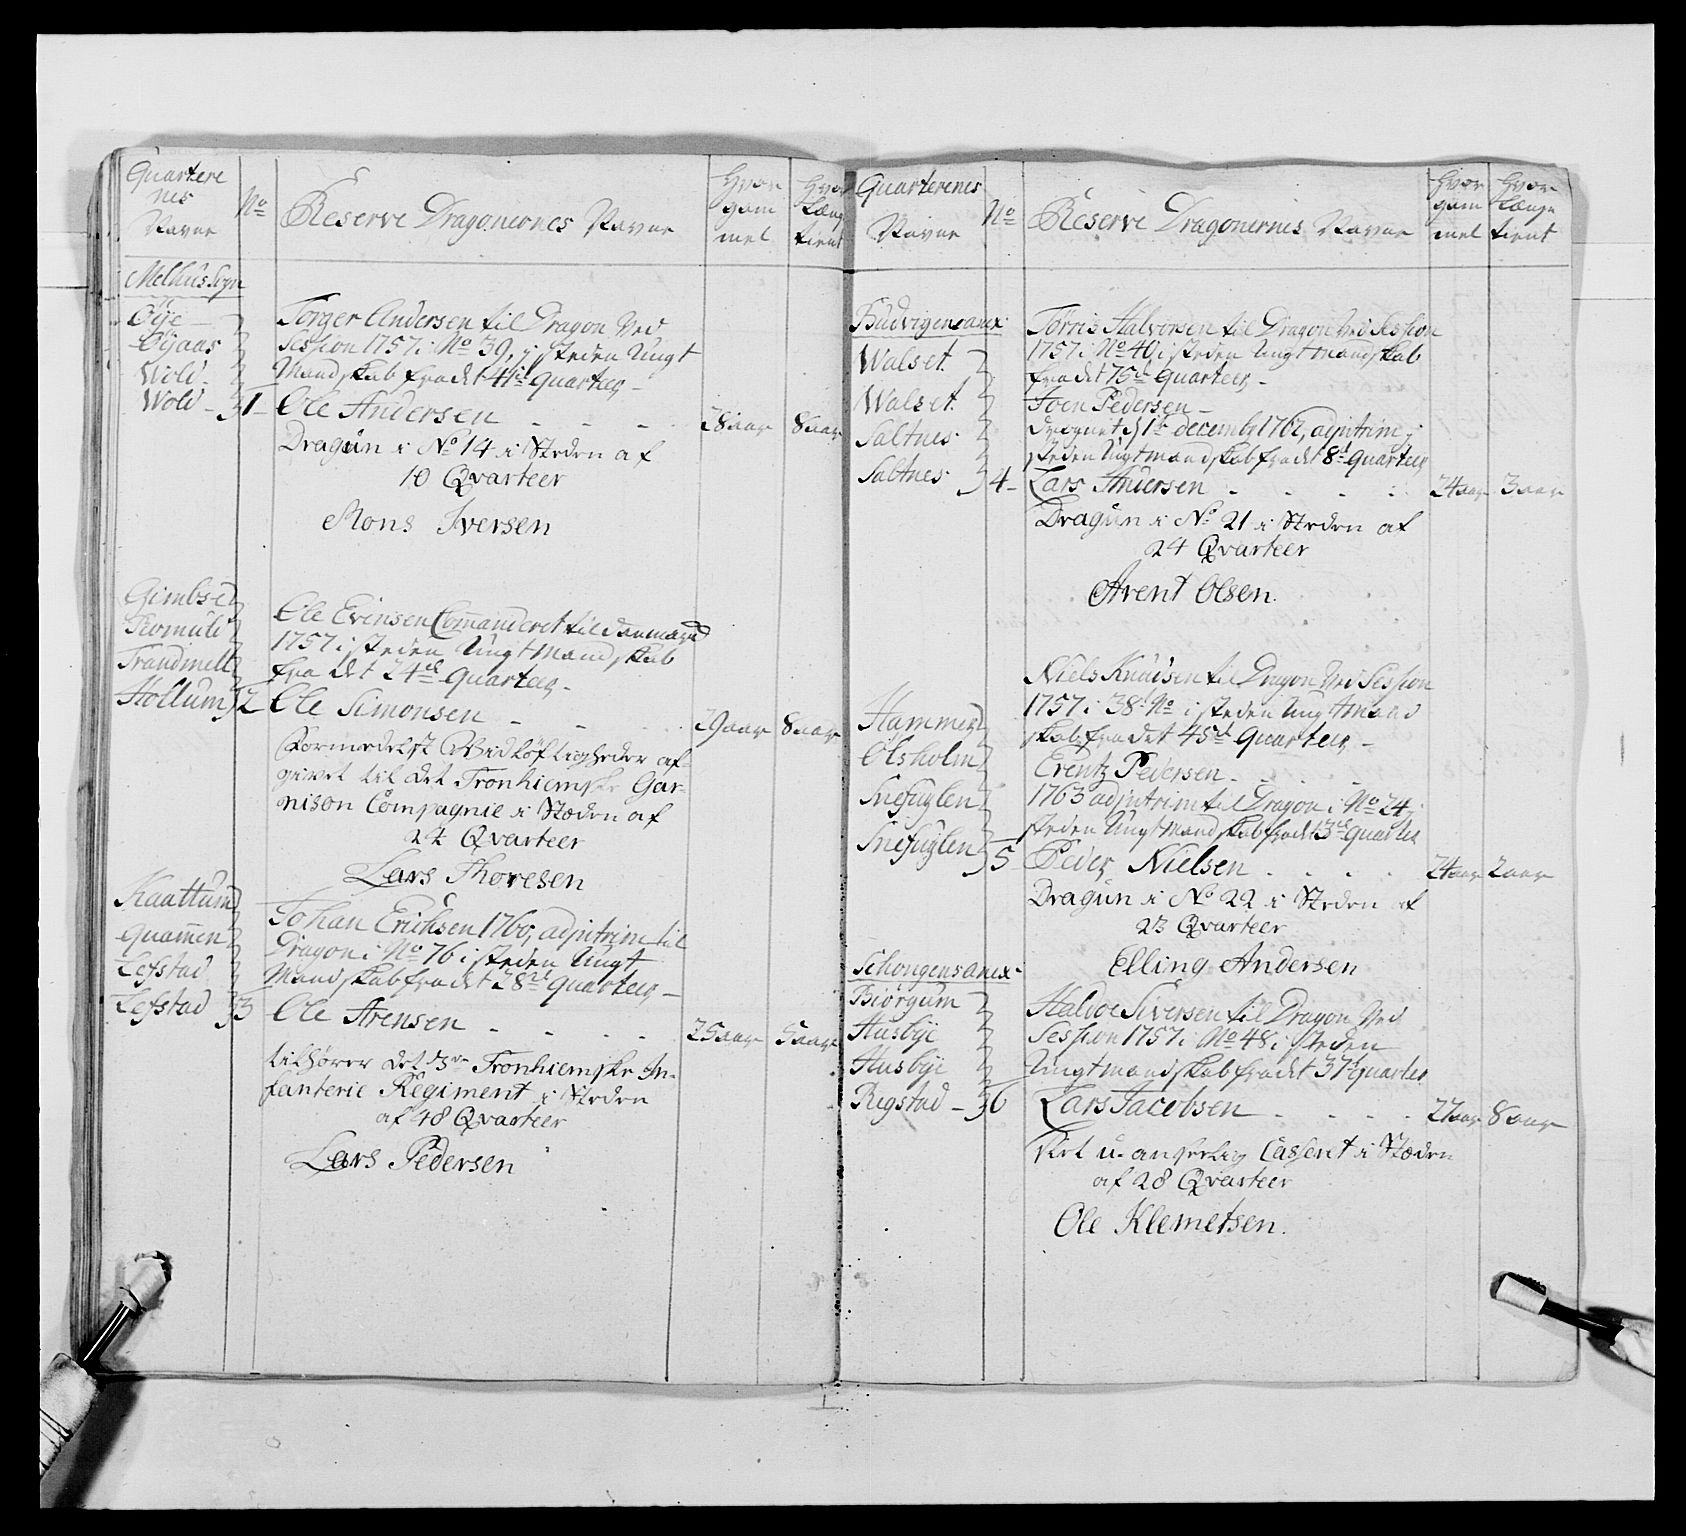 Quartere
nes
Navne
No
Reserve Dragonernes Navne
Hvor
gam
mel
Hvor
Længe
tient
Melhus Sogn
Öÿe
Öÿaas
Wold
Wold - 1
Torger Andersen til Dragon Ved
Session 1757 i No 39, i steden Ungt
Mandskab fra det 41de Quarteer -
Ole Andersen - - - 28 aar 8 aar
Dragün i No 14 i Steden af
10 Qvarteer
Mons Iversen
Gimbsed
Romuld
Trandmell
Hollum 2
Ole Evensen Commanderet til Danmarck
1757 i steden Ungt Mandskab
fra det 24de Quarteer -
Ole Simonsen - - - 29 aar 8 aar
Formedelst Vidløftigheder af-
givet til det Tronhiemske Gar-
nison Compagnie i Stæden af
24 Qvarteer
Lars Thoresen
Kaattum
Quammen
Lefstad
Lefstad 3
Johan Erichsen 1760, adjntrim til
Dragon i No 76 i steden Ungt
Mandskab fra det 28de Quarteer -
Ole Arensen - - - 25 aar 5 aar
tilhører det 3de Tronhiemske In-
fanterie Regiment i Steden
af 48 Qvarteer
Lars Pedersen
Quarterenes
Navne
No
Reserve Dragonernes Navne
Hvor
gam
mel
Hvor
Længe
tient
Büdvigens anex
Walset
Walset
Saltnes
Saltnes 4
Törris Halvorsen til Dragon Ved Session
1757 i No 40 i steden Ungt Mandskab
fra det 75de Quarteer -
Joen Pedersen -
d 1te decembr 1762, adjntrim i
steden Ungt mandskab fra det 8de Quarteer
Lars Andersen - - - 24 aar 3 aar
Dragün i No 21 i Steden af
24 Qvarteer
Arent Olsen.
Hammer
Olsholm
Snefuglen
Snefuglen 5
Niels Knudsen til Dragon Ved Session
1757 i 38 No i steden Ungt Mand
skab fra det 45de Quarteer -
Erentz Pedersen - - -
1763 adjntrim til Dragon i No 24 i
steden Ungt Mandskab fra det 13de Quarteer
Peder Nielsen - - - 24 aar 2 aar
Dragün i No 22 i Steden af
23 Qvarteer
Elling Andersen
Schougens anex
Biörgum
Husbye
Husbye
Rigstad - 6
Haldoe Siversen til Dragon Ved
Session 1757 i No 48 i steden
Ungt mandskab fra det 37de Quarteer
Lars Jacobsen - - - 27 aar 8 aar
Casseret i Stæden
af 28 Qvarteer
Ole Klemetsen.